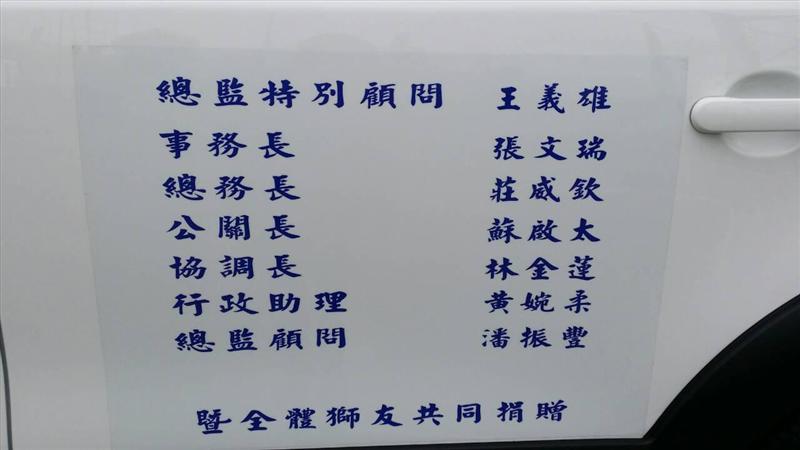 總監特別顧問 王義雄
事務長 張文瑞
總務長 莊威欽
公關長 蘇啟太
協調長 林金蓮
行政助理 黃婉柔
總監顧問 潘振豐
暨全體獅友共同捐贈